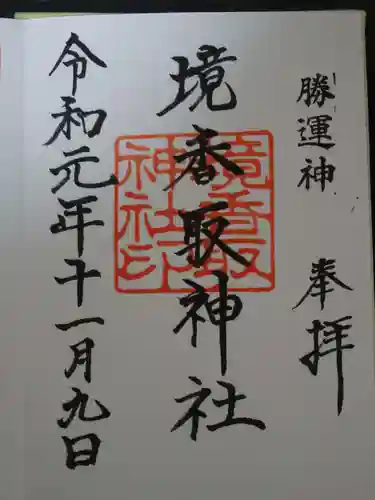 勝運神 奉拝
境香取神社
境香取神社印
令和元年十一月九日